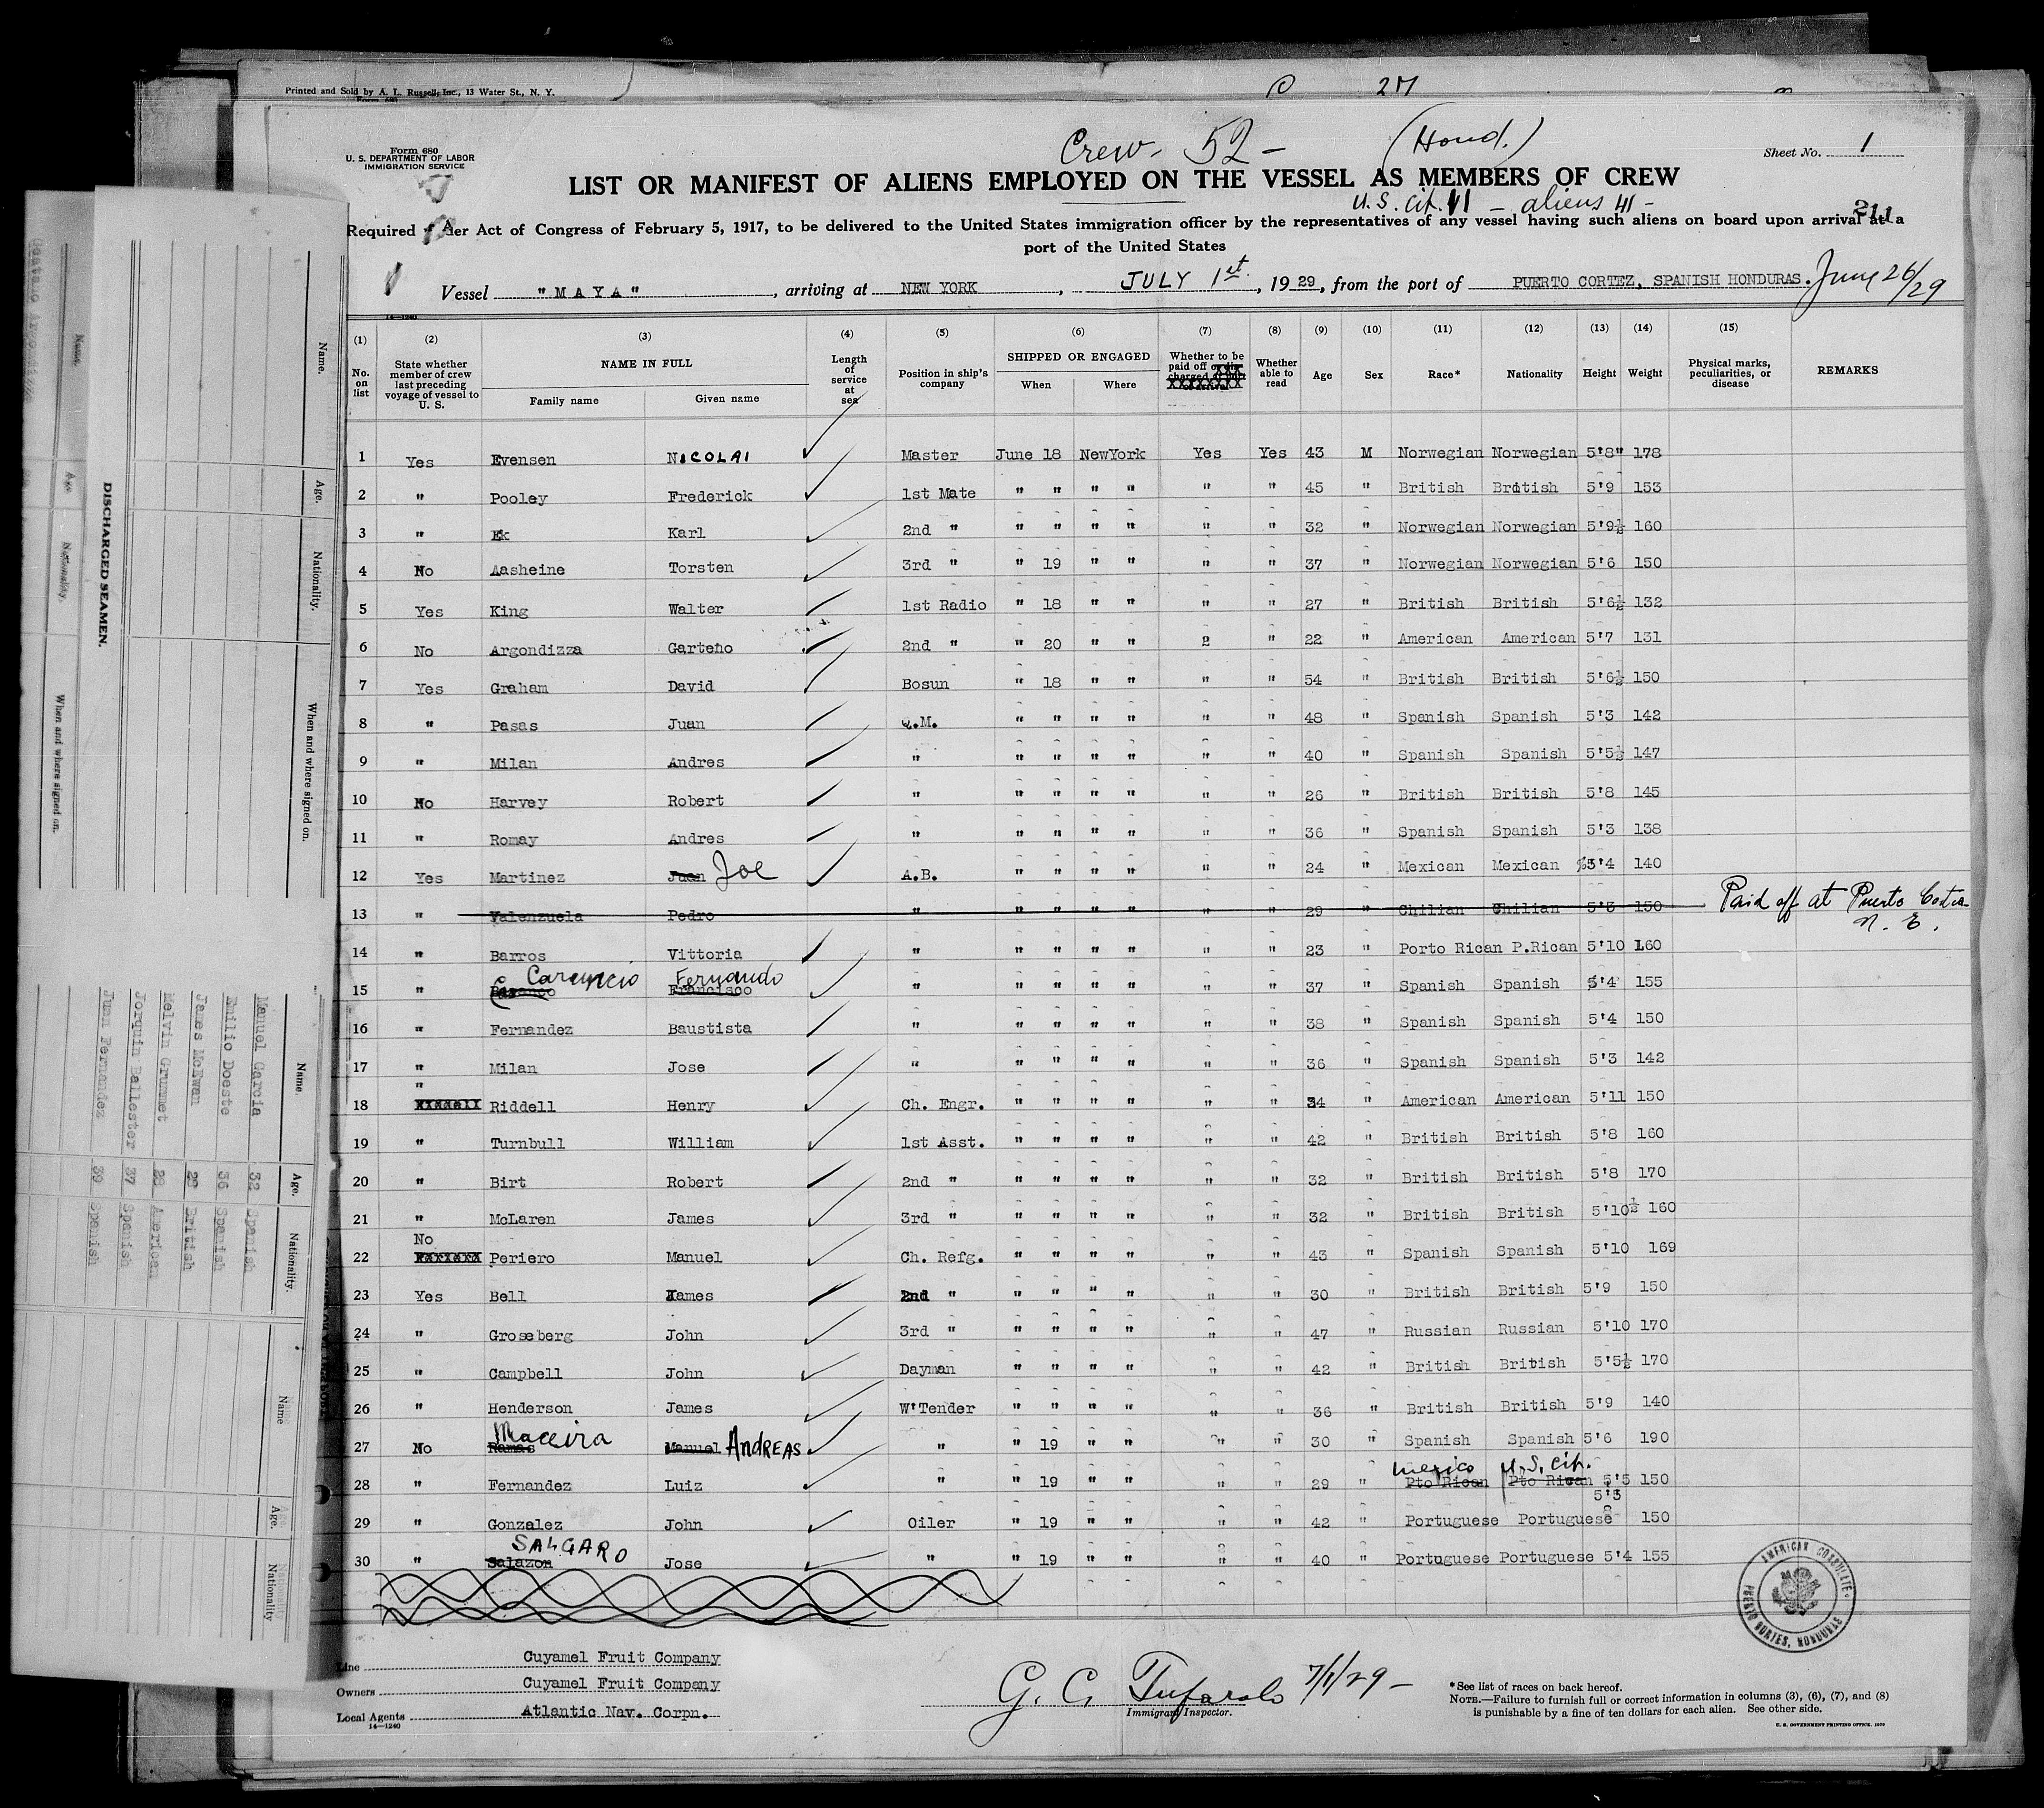 Printed and Sold by A. L. Russell, Inc., 13 Water St., N. Y.
Form 680
U. S. DEPARTMENT OF LABOR
IMMIGRATION SERVICE
Crew - 52 - (Hond.)
Sheet No. 1
LIST OR MANIFEST OF ALIENS EMPLOYED ON THE VESSEL AS MEMBERS OF CREW
U.S. cit. 11 - aliens 41 -
211
Required der Act of Congress of February 5, 1917, to be delivered to the United States immigration officer by the representatives of any vessel having such aliens on board upon arrival at a
port of the United States
Vessel "MAYA", arriving at NEW YORK, JULY 1st, 1929, from the port of PUERTO CORTEZ, SPANISH HONDURAS. June 26/29
14—1240
(1) (2) (3) (4) (5) (6) (7) (8) (9) (10) (11) (12) (13) (14) (15)
No. on list
State whether member of crew last preceding voyage of vessel to U. S.
NAME IN FULL
Family name Given name
Length of service at sea
Position in ship's company
SHIPPED OR ENGAGED
When Where
Whether to be paid off or discharged
Whether able to read
Age Sex Race* Nationality Height Weight
Physical marks, peculiarities, or disease
REMARKS
1 Yes Evensen NICOLAI Master June 18 NewYork Yes Yes 43 M Norwegian Norwegian 5'8" 178
2 " Pooley Frederick 1st Mate " " " " " " 45 " British British 5'9 153
3 " Ek Karl 2nd " " " " " " " 32 " Norwegian Norwegian 5'9½ 160
4 No Aasheine Torsten 3rd " " 19 " " " " 37 " Norwegian Norwegian 5'6 150
5 Yes King Walter 1st Radio " 18 " " " " 27 " British British 5'6½ 132
6 No Argondizza Garteno 2nd " " 20 " " 2 " 22 " American American 5'7 131
7 Yes Graham David Bosun " 18 " " " " 54 " British British 5'6½ 150
8 " Pasas Juan Q.M. " " " " " " 48 " Spanish Spanish 5'3 142
9 " Milan Andres " " " " " " " 40 " Spanish Spanish 5'5½ 147
10 No Harvey Robert " " " " " " " 26 " British British 5'8 145
11 " Romay Andres " " " " " " " 36 " Spanish Spanish 5'3 138
12 Yes Martinez Juan Joe A.B. " " " " " " 24 " Mexican Mexican 5'4 140
13 " Valenzuela Pedro " " " " " " " 29 " Chilian Chilian 5'3 150 Paid off at Puerto Cortes
N. E.
14 " Barros Vittoria " " " " " " " 23 " Porto Rican P.Rican 5'10 160
Fernando
15 " Francisco " " " " " " " 37 " Spanish Spanish 5'4 155
16 " Fernandez Baustista " " " " " " " 38 " Spanish Spanish 5'4 150
17 " Milan Jose " " " " " " " 36 " Spanish Spanish 5'3 142
18 " Riddell Henry Ch. Engr. " " " " " " 34 " American American 5'11 150
19 " Turnbull William 1st Asst. " " " " " " 42 " British British 5'8 160
20 " Birt Robert 2nd " " " " " " " 32 " British British 5'8 170
21 " McLaren James 3rd " " " " " " " 32 " British British 5'10½ 160
22 No Periero Manuel Ch. Refg. " " " " " " 43 " Spanish Spanish 5'10 169
23 Yes Bell James 2nd " " " " " " " 30 " British British 5'9 150
24 " Groseberg John 3rd " " " " " " " 47 " Russian Russian 5'10 170
25 " Campbell John Dayman " " " " " " 42 " British British 5'5½ 170
26 " Henderson James W'Tender " " " " " " 36 " British British 5'9 140
Maceira
27 No Ramas Manuel ANDREAS " " 19 " " " " 30 " Spanish Spanish 5'6 190
mexico U.S. cit.
28 " Fernandez Luiz " " 19 " " " " 29 " Pto Rican Pto Rican 5'5 150
5'3
29 " Gonzalez John Oiler " 19 " " " " 42 " Portuguese Portuguese 150
SALGARO
30 " Salazon Jose " " 19 " " " " 40 " Portuguese Portuguese 5'4 155
AMERICAN CONSULATE
PUERTO CORTES, HONDURAS
Line Cuyamel Fruit Company
Owners Cuyamel Fruit Company
Local Agents Atlantic Nav. Corpn.
14—1240
G. C. Tufarolo 7/1/29 -
Immigrant Inspector.
*See list of races on back hereof.
NOTE.—Failure to furnish full or correct information in columns (3), (6), (7), and (8)
is punishable by a fine of ten dollars for each alien. See other side.
U. S. GOVERNMENT PRINTING OFFICE
DISCHARGED SEAMEN.
Name. Age. Nationality. When and where signed on.
Name. Age. Nationality.
Manuel Garcia 32 Spanish
Emilio Doeste 36 Spanish
James McEwan 29 British
Melvin Grummet 28 American
Jorquin Ballester 37 Spanish
Juan Fernandez 39 Spanish
Name Age. Nationality